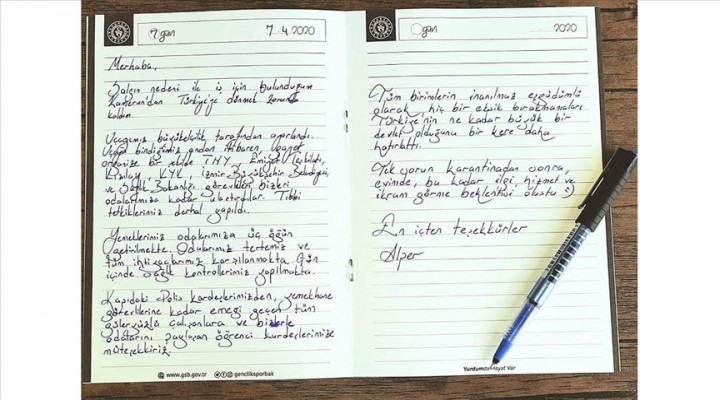 7.gün 7.4.2020
Merhaba,
Salgın nedeni ile iş için bulunduğum
Kamerun'dan Türkiye'ye dönmek zorunda
kaldım.
Uçağımız büyükelçilik tarafından ayarlandı.
Uçağa bindiğimiz andan itibaren, gayet
organize bir şekilde THY, Emniyet Teşkilatı,
Kızılay, KYK, İzmir Büyükşehir Belediyesi,
ve Sağlık Bakanlığı görevlileri bizleri
odalarımıza kadar ulaştırdılar. Tıbbi
tetkiklerimiz derhal yapıldı.
Yemeklerimiz odalarımıza üç öğün
getirilmekte. Odalarımız tertemiz ve
tüm ihtiyaçlarımız karşılanmakta. Gün
içinde sağlık kontrollerimiz yapılmakta.
Kapıdaki Polis kardeşlerimizden, yemekhane
görevlilerine kadar emeği geçen tüm
güleryüzlü çalışanlara ve bizlerle
odalarını paylaşan öğrenci kardeşlerimize
müteşekkiriz.
www.gsb.gov.tr gencliksporbak
gün 2020
Tüm birimlerin inanılmaz eşgüdümlü
olarak, hiç bir eksik bırakmamaları
Türkiye'nin ne kadar büyük bir
devlet olduğunu bir kere daha
hatırlattı.
Tek sorun karantinadan sonra,
evimde, bu kadar ilgi, hizmet ve
ikram görme beklentisi oluştu :)
En içten teşekkürler
Alper
Yurdumda Hayat Var